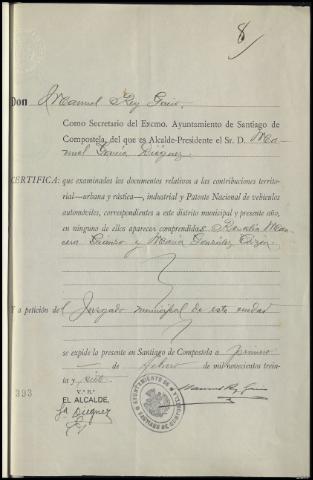 8/
Don Manuel Rey
Como Secretario del Excmo. Ayuntamiento de Santiago de
Compostela, del que es Alcalde-Presidente el Sr. D. Ma-
nuel García Diéguez
CERTIFICA: que examinados los documentos relativos a las contribuciones territo-
rial—urbana y rústica—, industrial y Patente Nacional de vehículos
automóviles, correspondientes a este distrito municipal y presente año,
en ninguno de ellos aparecen comprendidas Rosalía
y María González
Y a petición del Juzgado municipal de esta ciudad
se expide la presente en Santiago de Compostela a primero
de febrero de mil novecientos trein-
ta y siete
393
V.º B.º
EL ALCALDE,
Diéguez
AYUNTAMIENTO DE
SANTIAGO DE COMPOSTELA
Manuel Rey